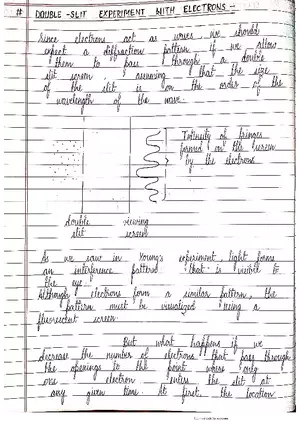 # DOUBLE-SLIT EXPERIMENT WITH ELECTRONS -
Since electrons act as waves, we should
expect a diffraction pattern if we allow
them to pass through a double
slit screen, assuming that the size
of the slit is on the order of the
wavelength of the wave.
Intensity of fringes
formed on the screen
by the electrons
double viewing
slit screen
As we saw in Young's experiment, light forms
an interference pattern that is visible to
the eye.
Although electrons form a similar pattern, the
pattern must be visualized using a
fluorescent screen.
But what happens if we
decrease the number of electrons that pass through
the openings to the point where only
one electron enters the slit at
any given time. At first, the location